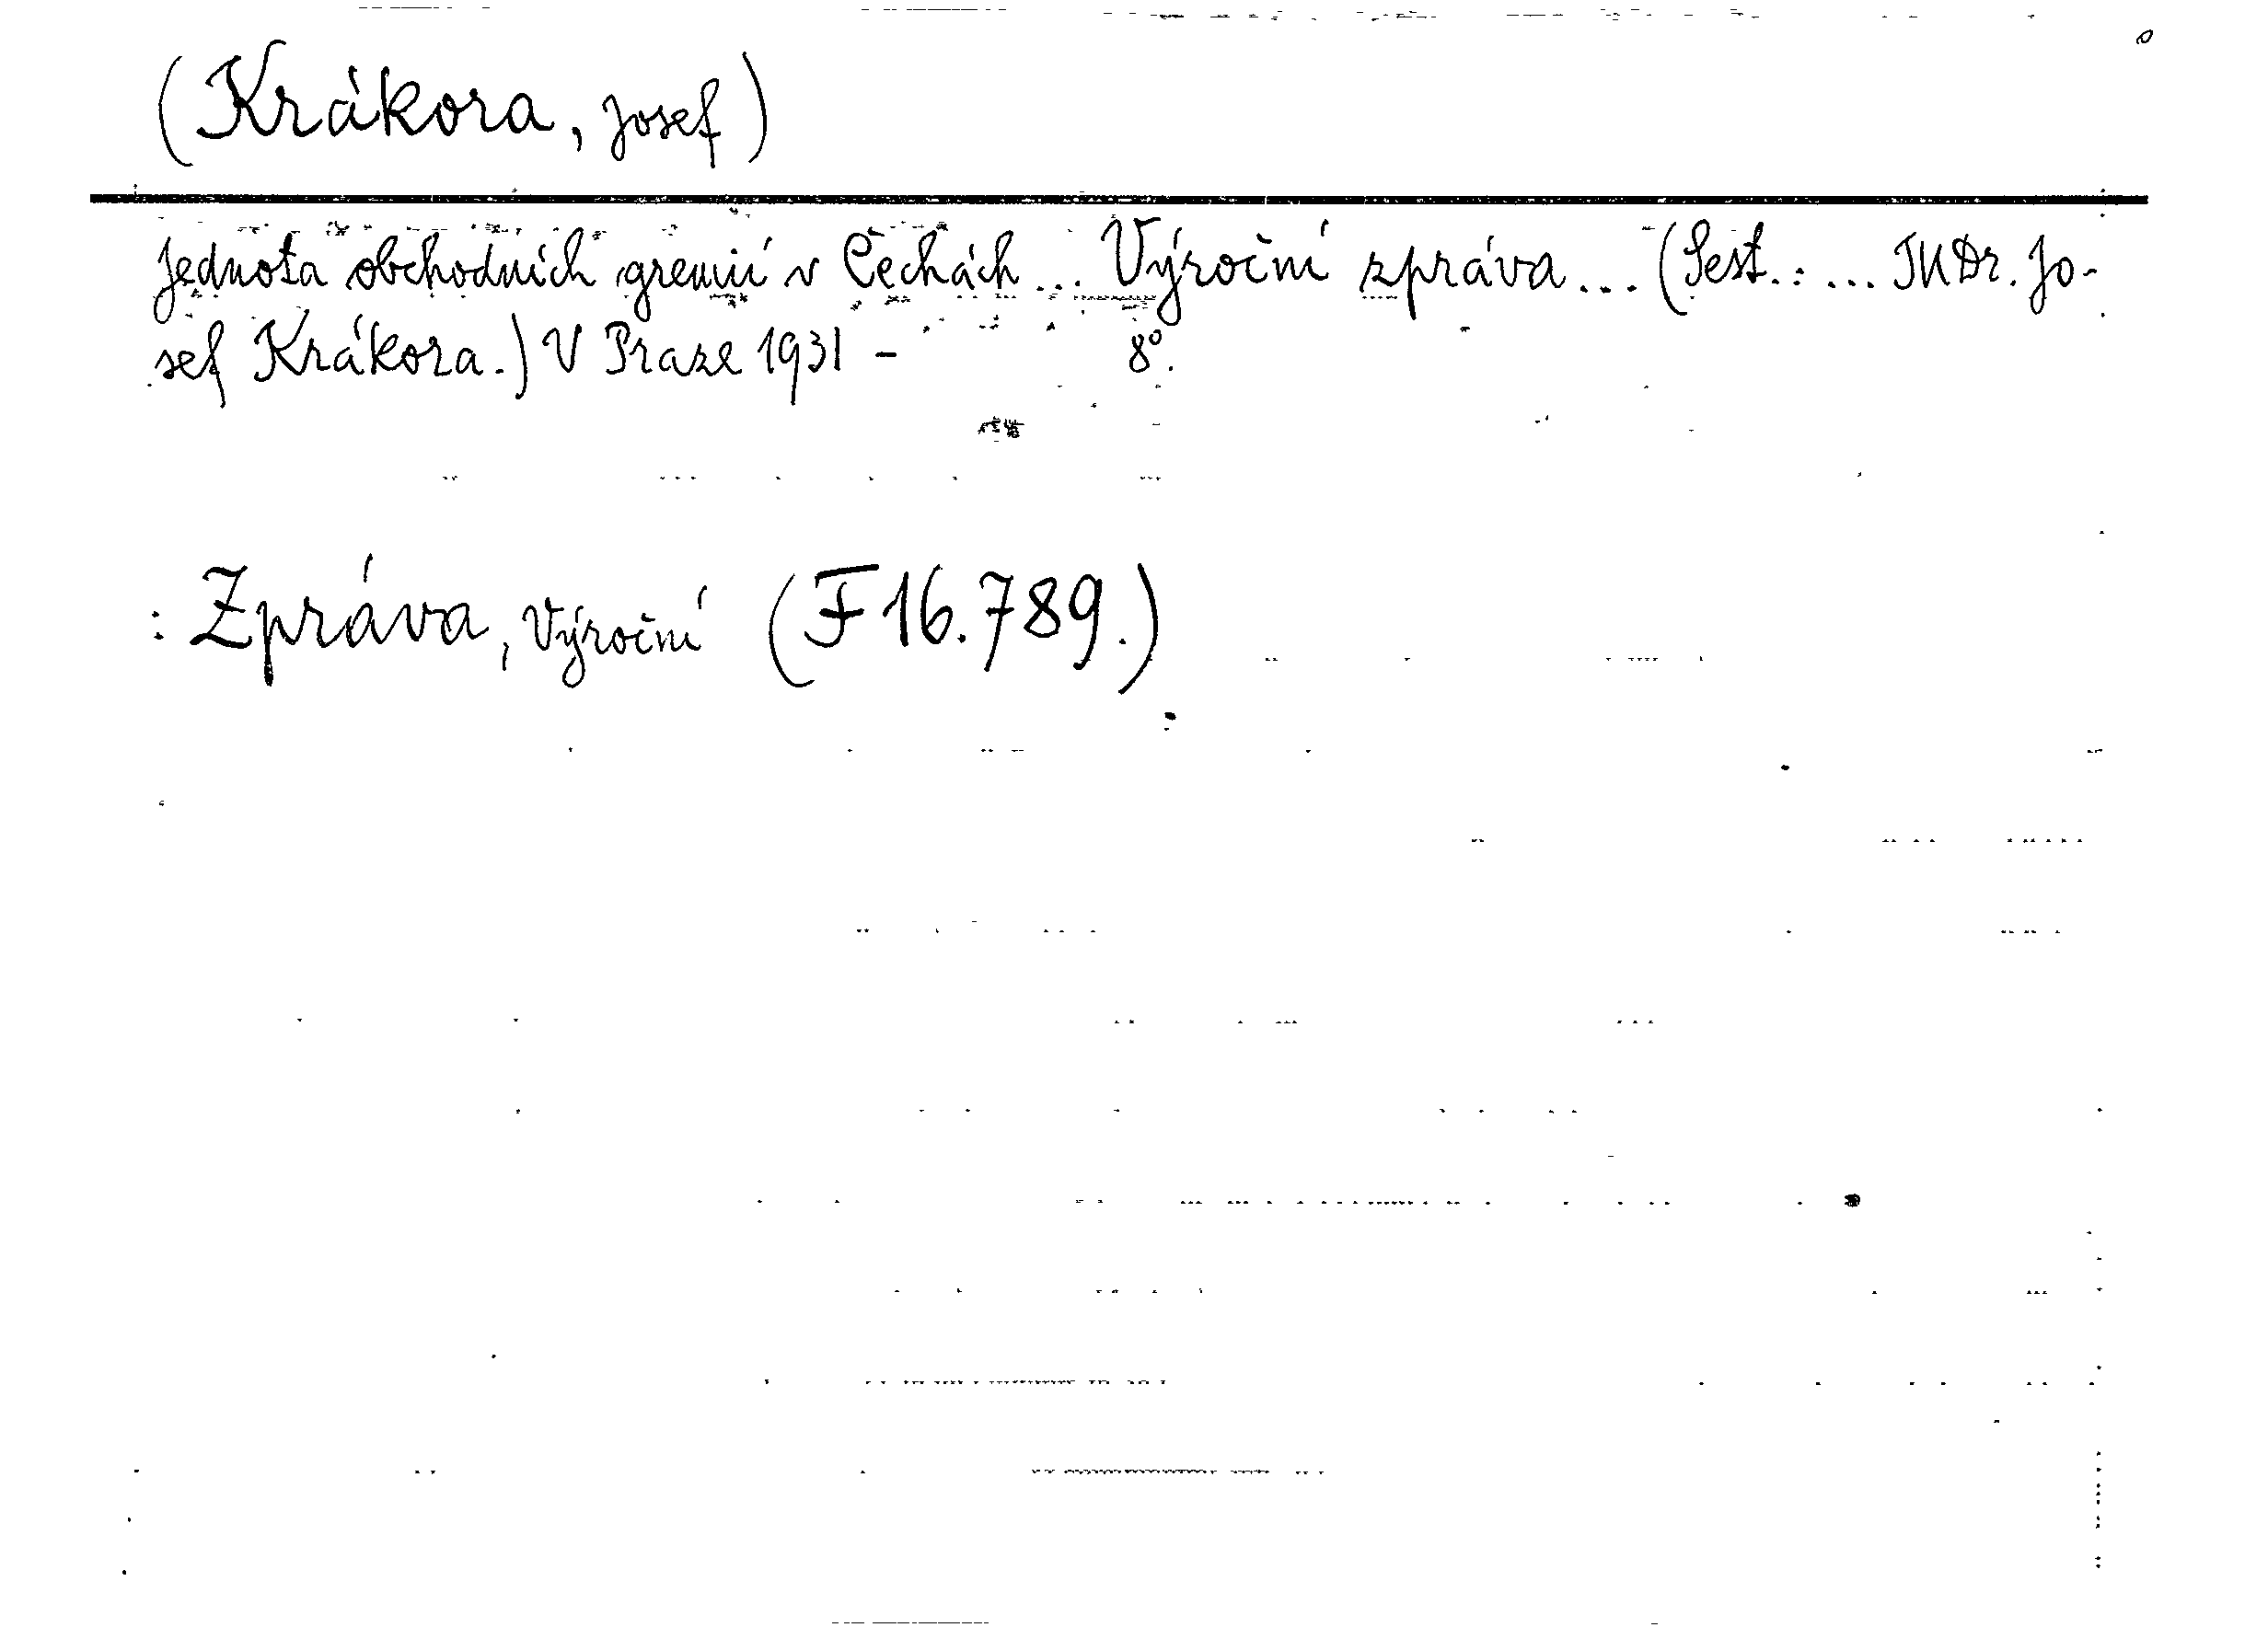 (Krákora, Josef)
Jednota obchodních gremií v Čechách... Výroční zpráva... (Sest.: ... JUDr. Jo-
sef Krákora.) V Praze 1931 - 8°.
: Zpráva, Výroční (F 16.789.)